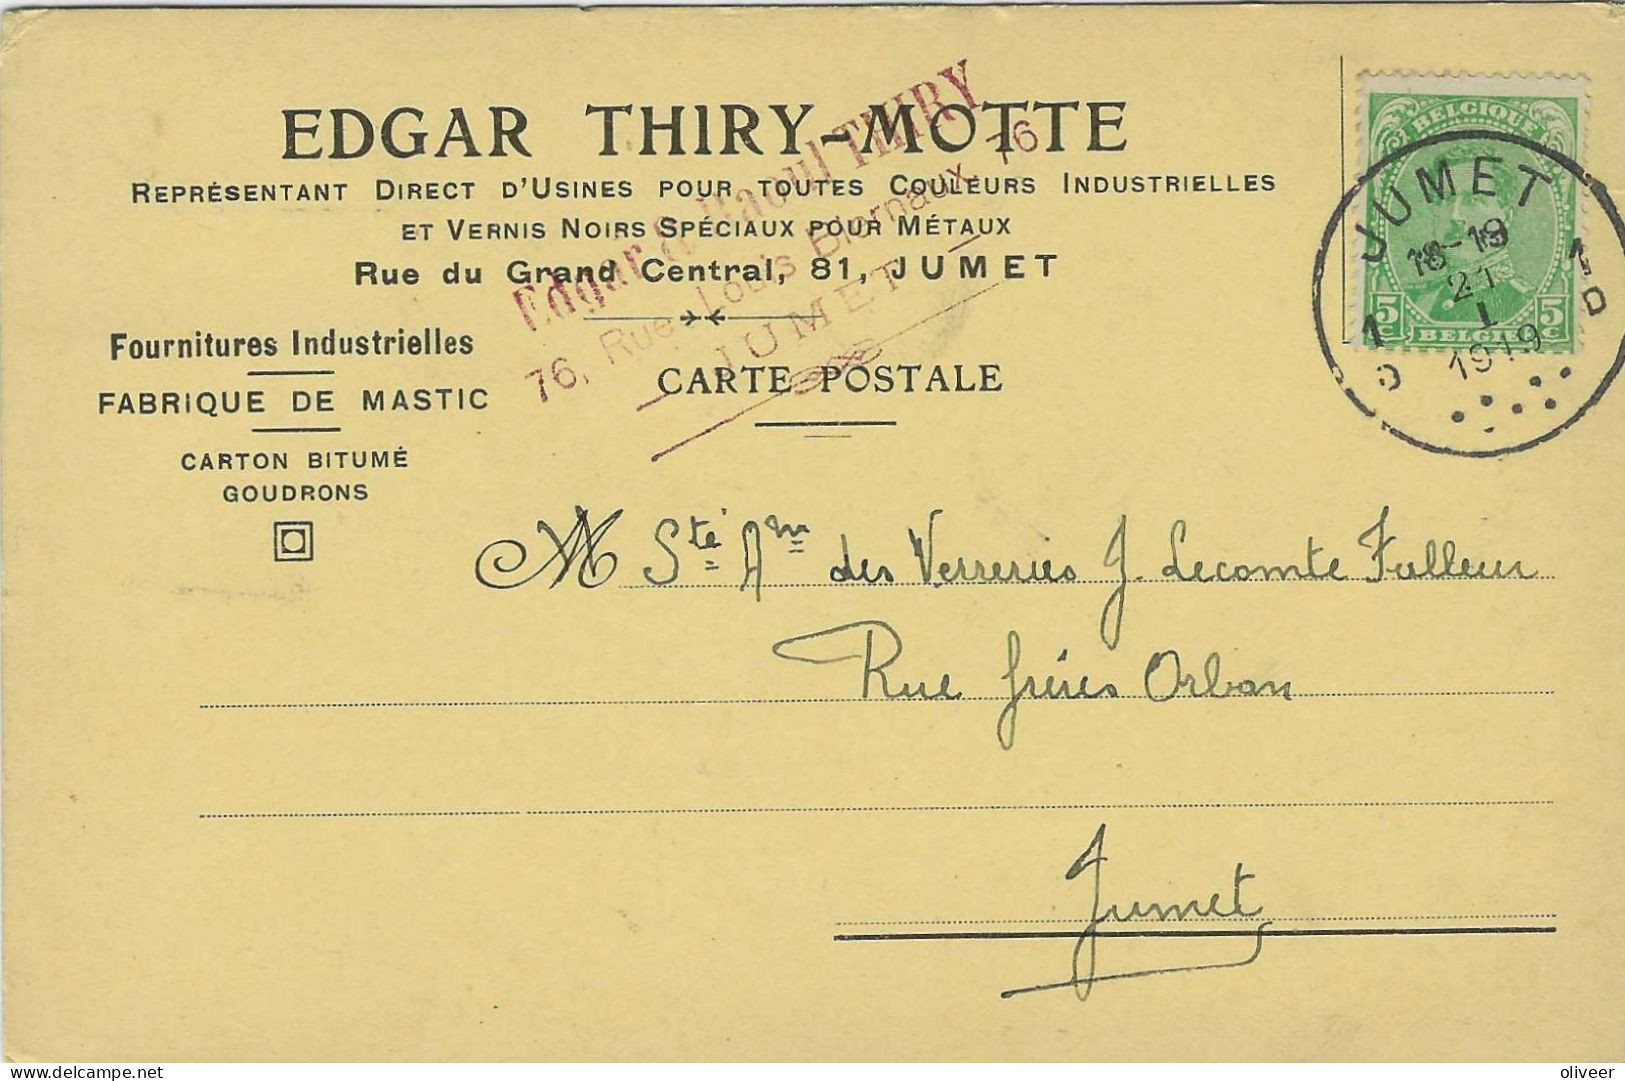 EDGAR THIRY-MOTTE
REPRÉSENTANT DIRECT D'USINES POUR TOUTES COULEURS INDUSTRIELLES
ET VERNIS NOIRS SPÉCIAUX POUR MÉTAUX
Rue du Grand Central, 81, JUMET
Edgar & Raoul THIRY
76, Rue Louis Biernaux, 76
JUMET
Fournitures Industrielles
FABRIQUE DE MASTIC
CARTON BITUMÉ
GOUDRONS
CARTE POSTALE
BELGIQUE
5c 5c
BELGIE
JUMET
18-19
21
I
1919
1D 1D
M Sté Ame des Verreries J. Lecomte Falleur
Rue frères Orban
Jumet
delcampe.net
oliveer